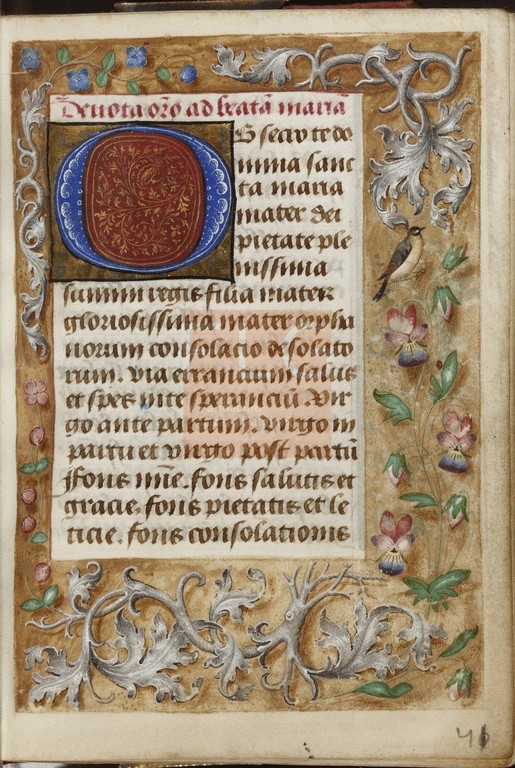 Devota orõ ad beatã mariã
OBsecro te do
mina sanc
ta maria
mater dei
pietate ple
nissima
summi regis filia mater
gloriosissima mater orpha
norum consolacio desolato
rum. via errancium salus
et spes in te speranciũ. Vir
go ante partum. virgo in
partu et virgo post partũ
Fons mĩe. fons salutis et
gracie. fons pietatis et le
ticie. fons consolationis